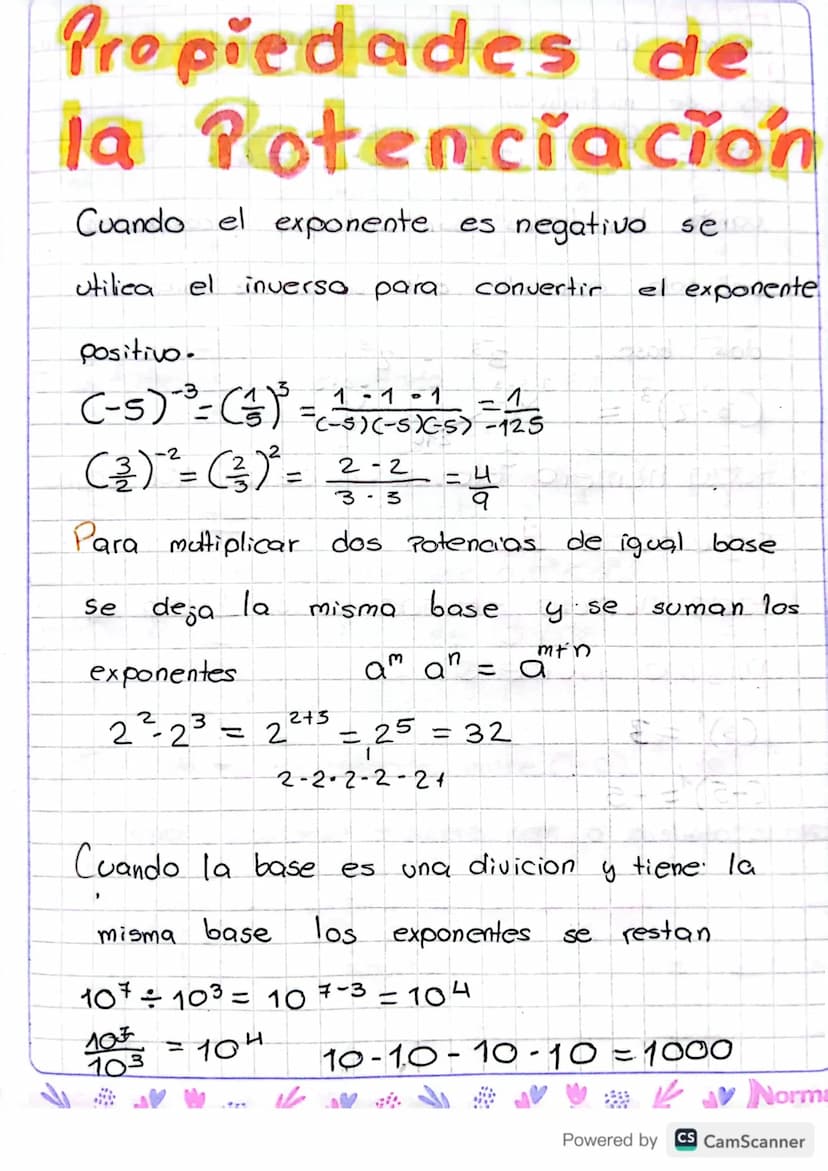 Propiedades de
la Potenciación
Cuando el exponente es negativo se
utilica el inverso para convertir el exponente
positivo.
(-5)⁻³ = (1/5)³ = 1·1·1/(-5)(-5)(-5) = 1/-125
(3/2)⁻² = (2/3)² = 2·2/3·3 = 4/9
Para multiplicar dos Potencias de igual base
se deja la misma base y se suman los
exponentes aᵐ aⁿ = aᵐ⁺ⁿ
2²·2³ = 2²⁺³ = 2⁵ = 32
2·2·2·2·2
Cuando la base es una divicion y tiene la
misma base los exponentes se restan
10⁷ ÷ 10³ = 10⁷⁻³ = 10⁴
10⁷/10³ = 10⁴ 10-10-10-10 = 1000
Norma
Powered by CS CamScanner